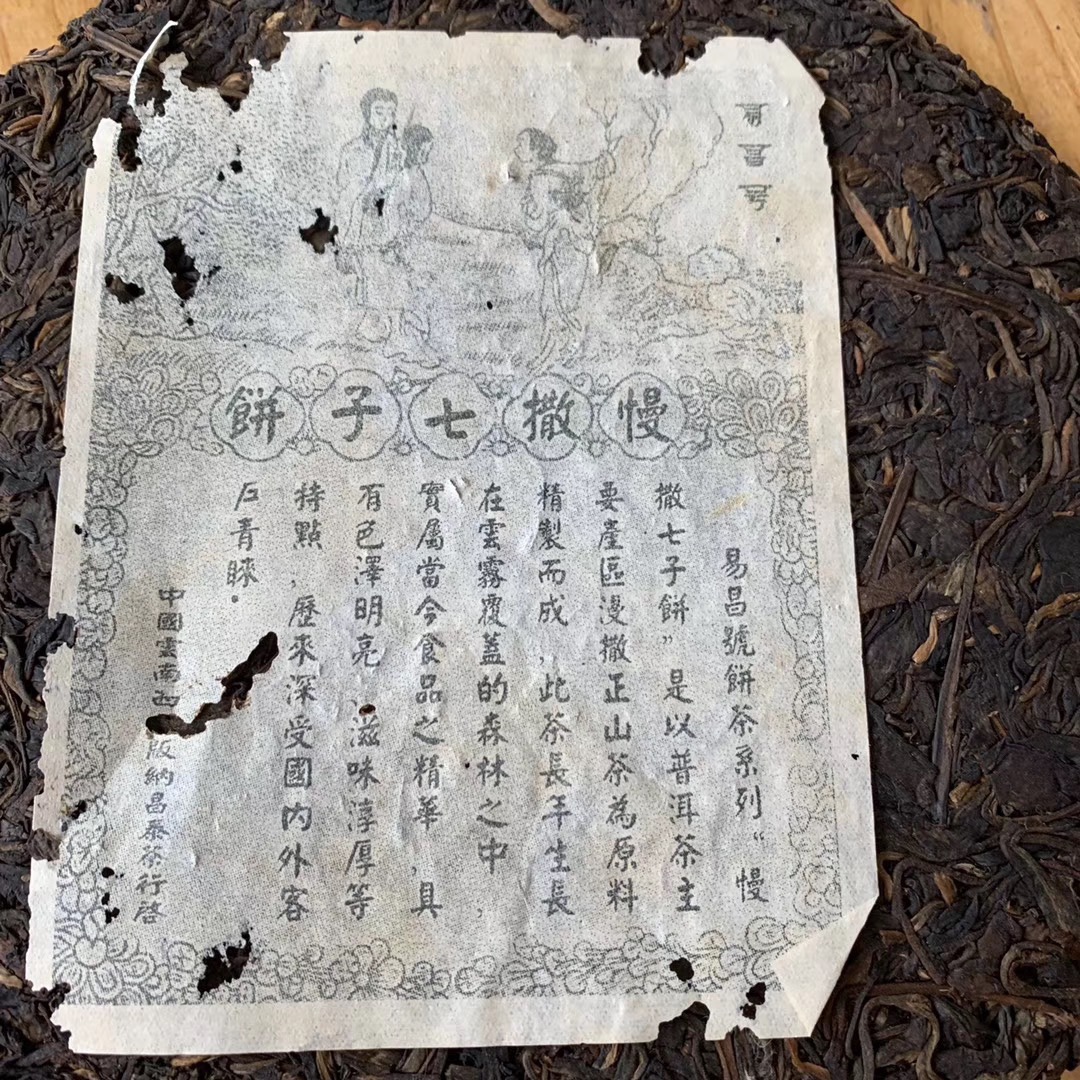 昌号
慢撒七子餅
易昌號餅茶系列“慢
撒七子餅”是以普洱茶主
要產區漫撒正山茶為原料
精製而成,此茶長年生長
在雲霧覆蓋的森林之中,
實屬當今食品之精華,具
有色澤明亮 滋味淳厚等
特點,歷來深受國内外客
戶青睞。
中國雲南西 版納昌泰茶行啓